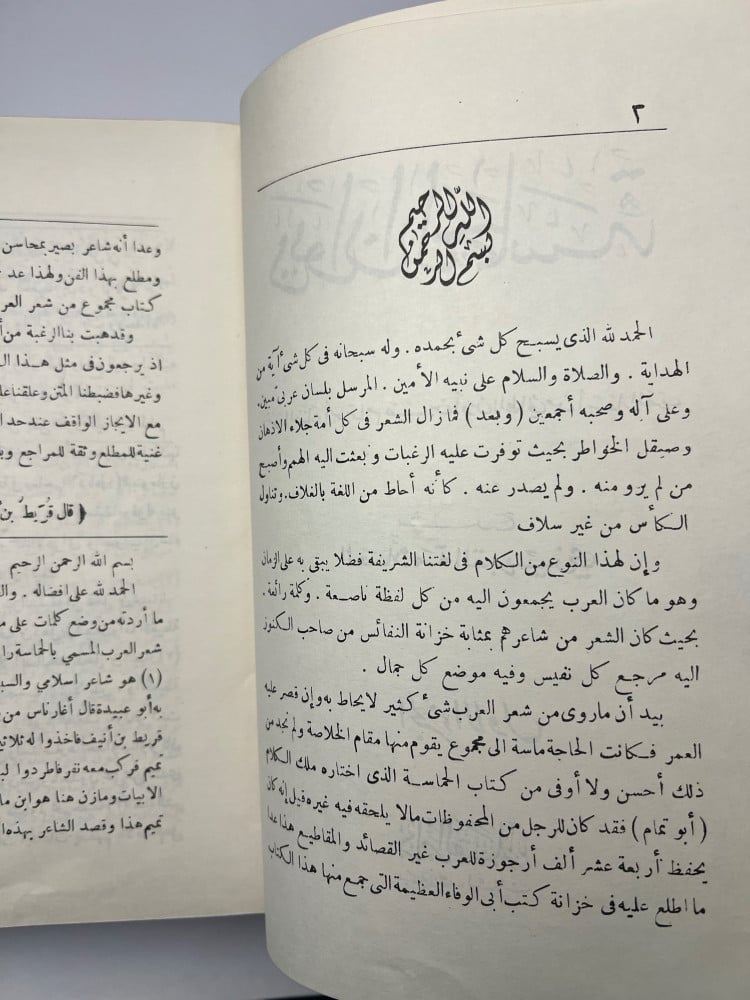 ٢
بسم الله الرحمن الرحيم
الحمد لله الذى يسبح كل شئ بحمده . وله سبحانه فى كل شئ آية من
الهداية . والصلاة والسلام على نبيه الأمين . المرسل بلسان عربى مبين.
وعلى آله وصحبه أجمعين ( وبعد ) فما زال الشعر فى كل أمة جلاء الاذهان
وصيقل الخواطر بحيث توفرت عليه الرغبات وبعثت اليه الهمم وأصبح
من لم يرو منه . ولم يصدر عنه . كأنه أحاط من اللغة بالغلاف. وتناول
الكأس من غير سلاف
وإن لهذا النوع من الكلام فى لغتنا الشريفة فضلا يبقى به على الزمان
وهو ما كان العرب يجمعون اليه من كل لفظة ناصعة . وكلمة رائعة .
بحيث كان الشعر من شاعرهم بمثابة خزانة النفائس من صاحب الكنوز
اليه مرجع كل نفيس وفيه موضع كل جمال .
بيد أن ماروى من شعر العرب شئ كثير لا يحاط به وإن قصر عليه
العمر فكانت الحاجة ماسة الى مجموع يقوم منها مقام الخلاصة ولم نجد من
ذلك أحسن ولا أوفى من كتاب الحماسة الذى اختاره ملك الكلام
( أبو تمام ) فقد كان للرجل من المحفوظات مالا يلحقه فيه غيره قيل إنه كان
يحفظ أربعة عشر ألف أرجوزة للعرب غير القصائد والمقاطيع هذا عدا
ما اطلع عليه فى خزانة كتب أبى الوفاء العظيمة التى جمع منها هذا الكتاب
وعدا أنه شاعر بصير بمحاسن
ومطلع بهذا الفن ولهذا عد
كتاب مجموع من شعر العر
وقد هبت بنا الرغبة من أ
اذ يرجعون فى مثل هذا ال
وغيرها فضبطنا المتن وعلقنا عا
مع الايجاز الواقف عند حد ا
غنية للمطلع وثقة للمراجع وب
( قال قُريط بن
بسم الله الرحمن الرحيم
الحمد لله على افضاله . وال
ما أردته من وضع كلمات على م
شعر العرب المسمى بالحماسة را
(١) هو شاعر اسلامى والسب
به أبو عبيدة قال أغار ناس من
قريط بن أنيف فاخذوا له ثلاثي
تميم فركب معه نفر فاطردوا ل
الابيات ومازن هنا هو ابن ما
تميم هذا وقصد الشاعر بهذه ا